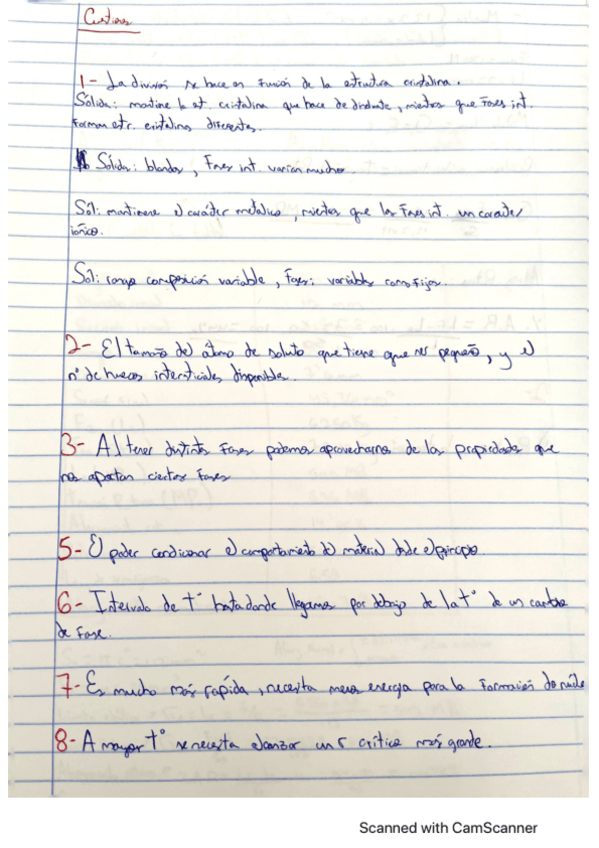 Cuestiones
1- La división se hace en función de la estructura cristalina.
Sólida: mantiene la et. cristalina que hace de disolvente, mientras que Fases int.
Forman estr. cristalinas diferentes.
Sólida: blandas, Fases int. varían mucho.
Sól: mantienene el carácter metalico, mientras que las Fases int. un caracter
iónico.
Sol: rango composición variable, Fases: variables como fijos.
2- El tamaño del átomo de soluto que tiene que ser pequeño, y el
nº de huecos intersticiales disponible.
3- Al tener distintas Fases podemos aprovecharnos de las propiedades que
nos aportan ciertas Fases
5- El poder condicionar el comportamiento del material desde el principio
6- Intervalo de tº hasta donde llegamos por debajo de la tº de un cambio
de Fase.
7- Es mucho más rápida, necesita menos energía para la Formación de núcleo
8- A mayor tº se necesita alcanzar un r crítico más grande.
Scanned with CamScanner